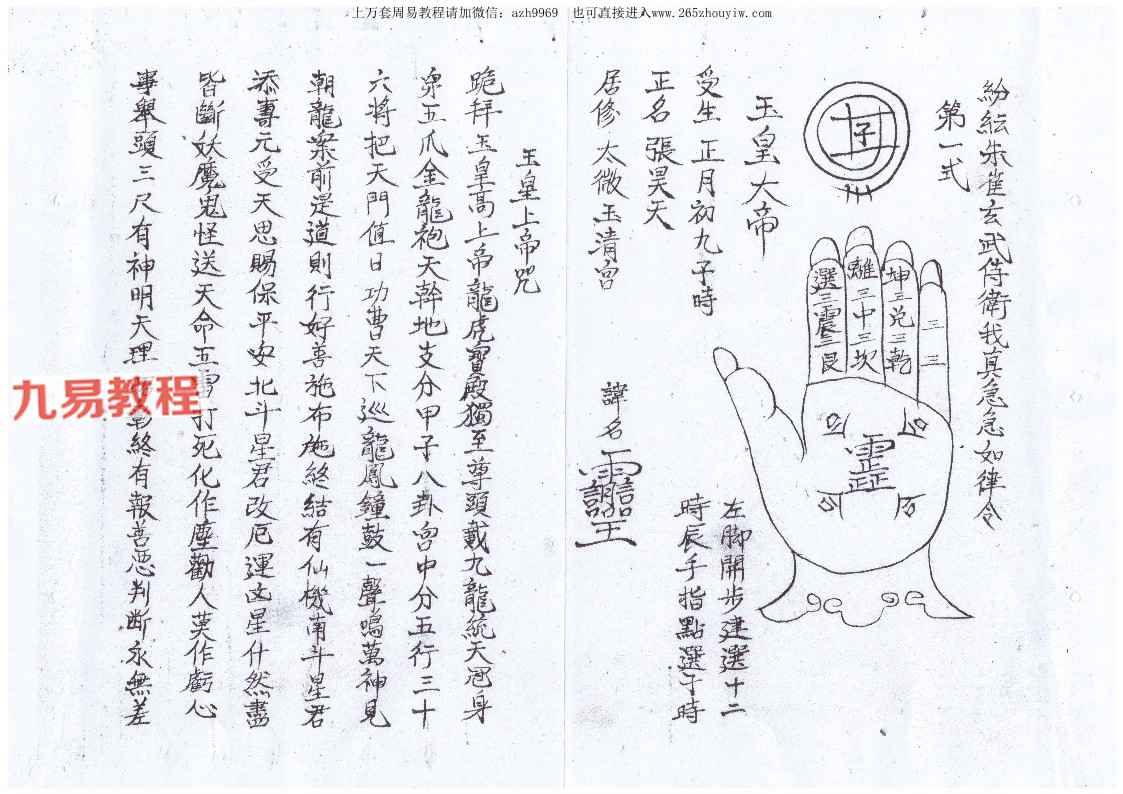 上万套周易教程请加微信：azh9969　也可直接进入www.265zhouyiw.com
紛紜朱雀玄武侍衛我真急急如律令
第一式
子
玉皇大帝
受生 正月初九子時
正名 張昊天
居修 太微玉清宮
諱名
選三震三艮
離三中三坎
坤三兑三乾
三 三
左脚開步建選十二
時辰手指點選子時
玉皇上帝咒
跪拜玉皇高上帝龍虎寶殿獨至尊頭戴九龍統天冠身
穿五爪金龍袍天幹地支分甲子八卦宮中分五行三十
六将把天門值日功曹天下巡龍鳳鐘鼓一聲鳴萬神見
朝龍案前是道則行好善施布施終結有仙機南斗星君
添壽元受天恩賜保平安北斗星君改厄運凶星什然盡
皆斷妖魔鬼怪送天命五雷打死化作塵勸人莫作虧心
事舉頭三尺有神明天理 終有報善悪判断永無差
九易教程